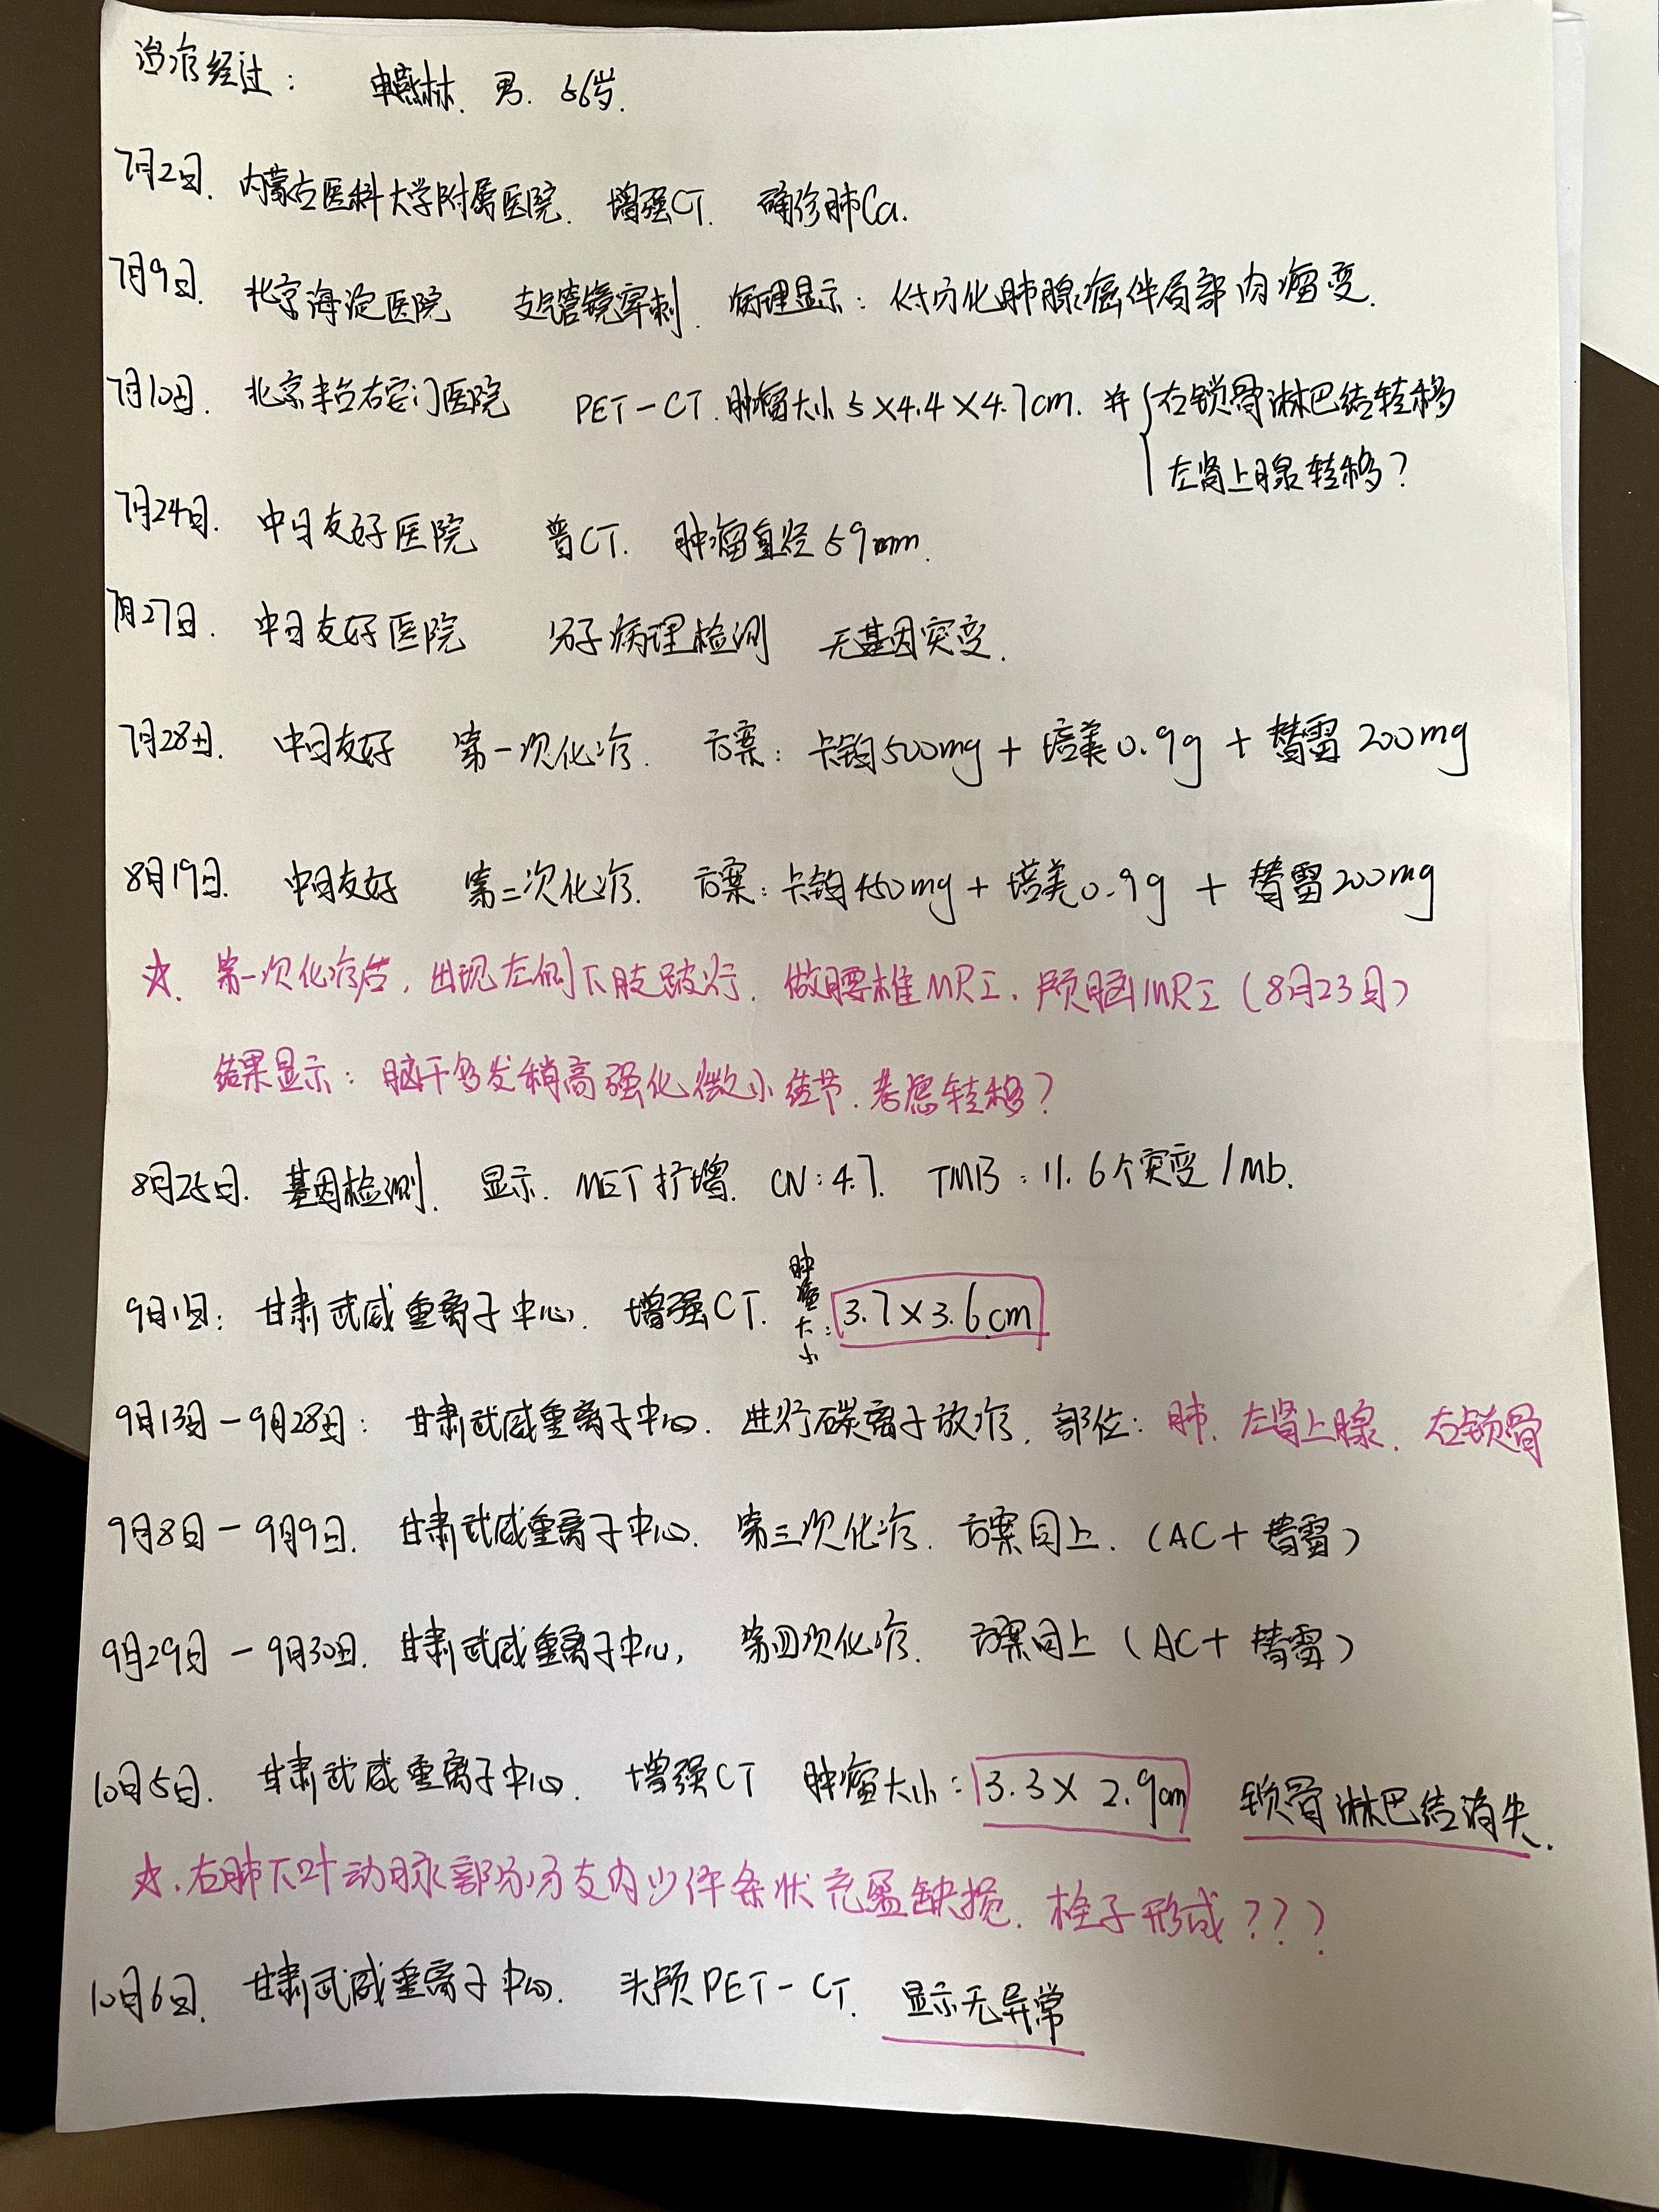 治疗经过： 申燕林. 男. 66岁.
7月2日. 内蒙古医科大学附属医院. 增强CT. 确诊肺Ca.
7月9日. 北京海淀医院 支气管镜穿刺. 病理显示：低分化肺腺癌伴局部肉瘤变.
7月10日. 北京丰台右安门医院 PET-CT. 肿瘤大小 5×4.4×4.7cm. 并 右锁骨淋巴结转移
左肾上腺转移？
7月24日. 中日友好医院 普CT. 肿瘤直径59mm.
7月27日. 中日友好医院 分子病理检测 无基因突变.
7月28日. 中日友好 第一次化疗. 方案：卡铂500mg + 培美0.9g + 替雷200mg
8月19日. 中日友好 第二次化疗. 方案：卡铂450mg + 培美0.9g + 替雷200mg
☆. 第一次化疗后，出现左侧下肢跛行. 做腰椎MRI、颅脑MRI（8月23日）
结果显示：脑干多发稍高强化微小结节. 考虑转移？
8月25日. 基因检测. 显示. MET扩增. CN：4.7. TMB：11.6个突变/Mb.
9月1日：甘肃武威重离子中心. 增强CT. 肿瘤大小：3.7×3.6cm
9月13日－9月28日：甘肃武威重离子中心. 进行碳离子放疗. 部位：肺、左肾上腺. 右锁骨
9月8日－9月9日. 甘肃武威重离子中心. 第三次化疗. 方案同上.（AC+替雷）
9月29日－9月30日. 甘肃武威重离子中心, 第四次化疗. 方案同上（AC+替雷）
10月5日. 甘肃武威重离子中心. 增强CT 肿瘤大小：3.3×2.9cm 锁骨淋巴结消失.
☆. 右肺下叶动脉部分分支内少许条状充盈缺损. 栓子形成？？？
10月6日. 甘肃武威重离子中心. 头颅PET-CT. 显示无异常